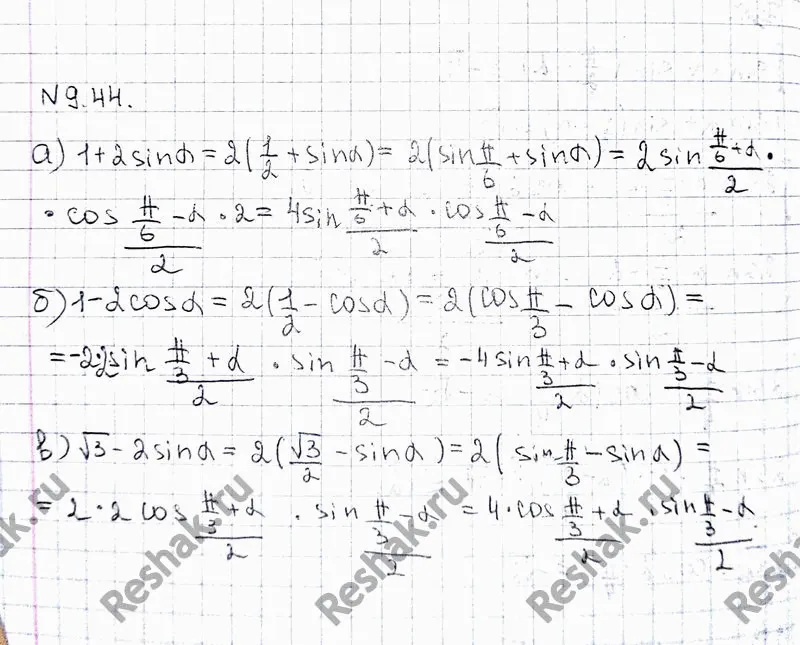 N 9.44.
а) 1+2sinα = 2(1/2 + sinα) = 2(sin π/6 + sinα) = 2 sin (π/6 + α)/2 ·
· cos (π/6 - α)/2 · 2 = 4sin (π/6 + α)/2 · cos (π/6 - α)/2
б) 1-2cosα = 2(1/2 - cosα) = 2(cos π/3 - cosα) =
= -2·2sin (π/3 + α)/2 · sin (π/3 - α)/2 = -4sin (π/3 + α)/2 · sin (π/3 - α)/2
в) √3 - 2sinα = 2(√3/2 - sinα) = 2(sin π/3 - sinα) =
= 2·2 cos (π/3 + α)/2 · sin (π/3 - α)/2 = 4·cos (π/3 + α)/2 · sin (π/3 - α)/2
Reshak.ru
Reshak.ru
Reshak.ru
Reshak.ru